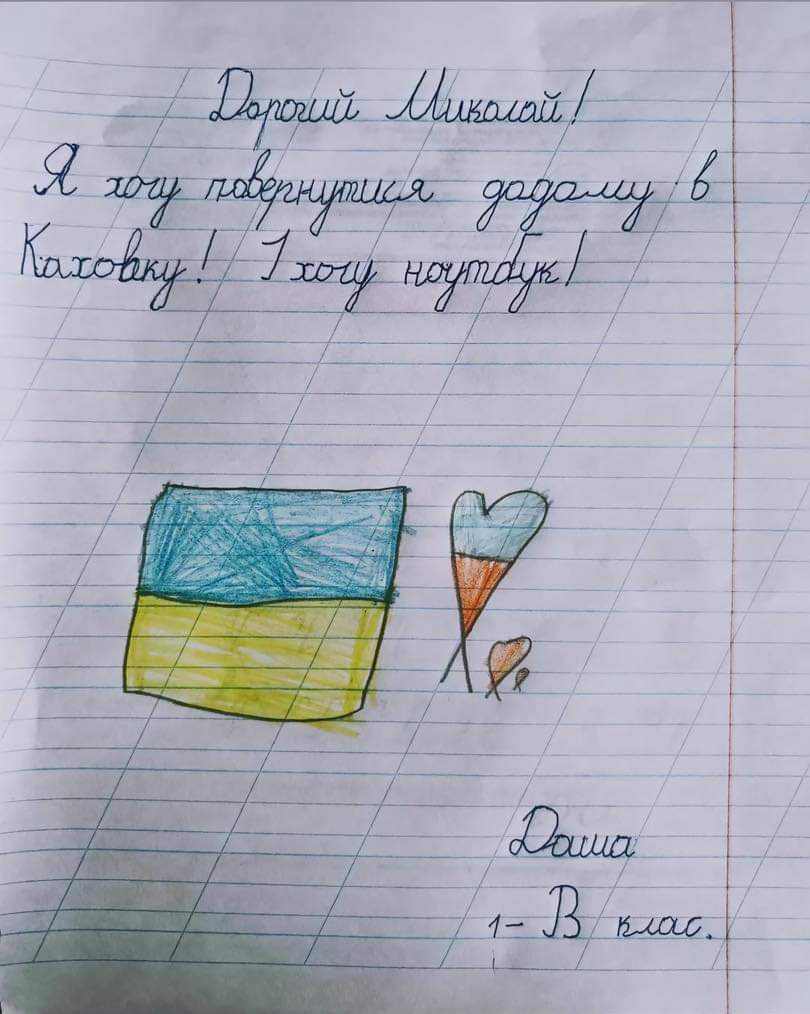 Дорогий Миколай!
Я хочу повернутися додому в
Каховку! І хочу ноутбук!
Даша
1-В клас.